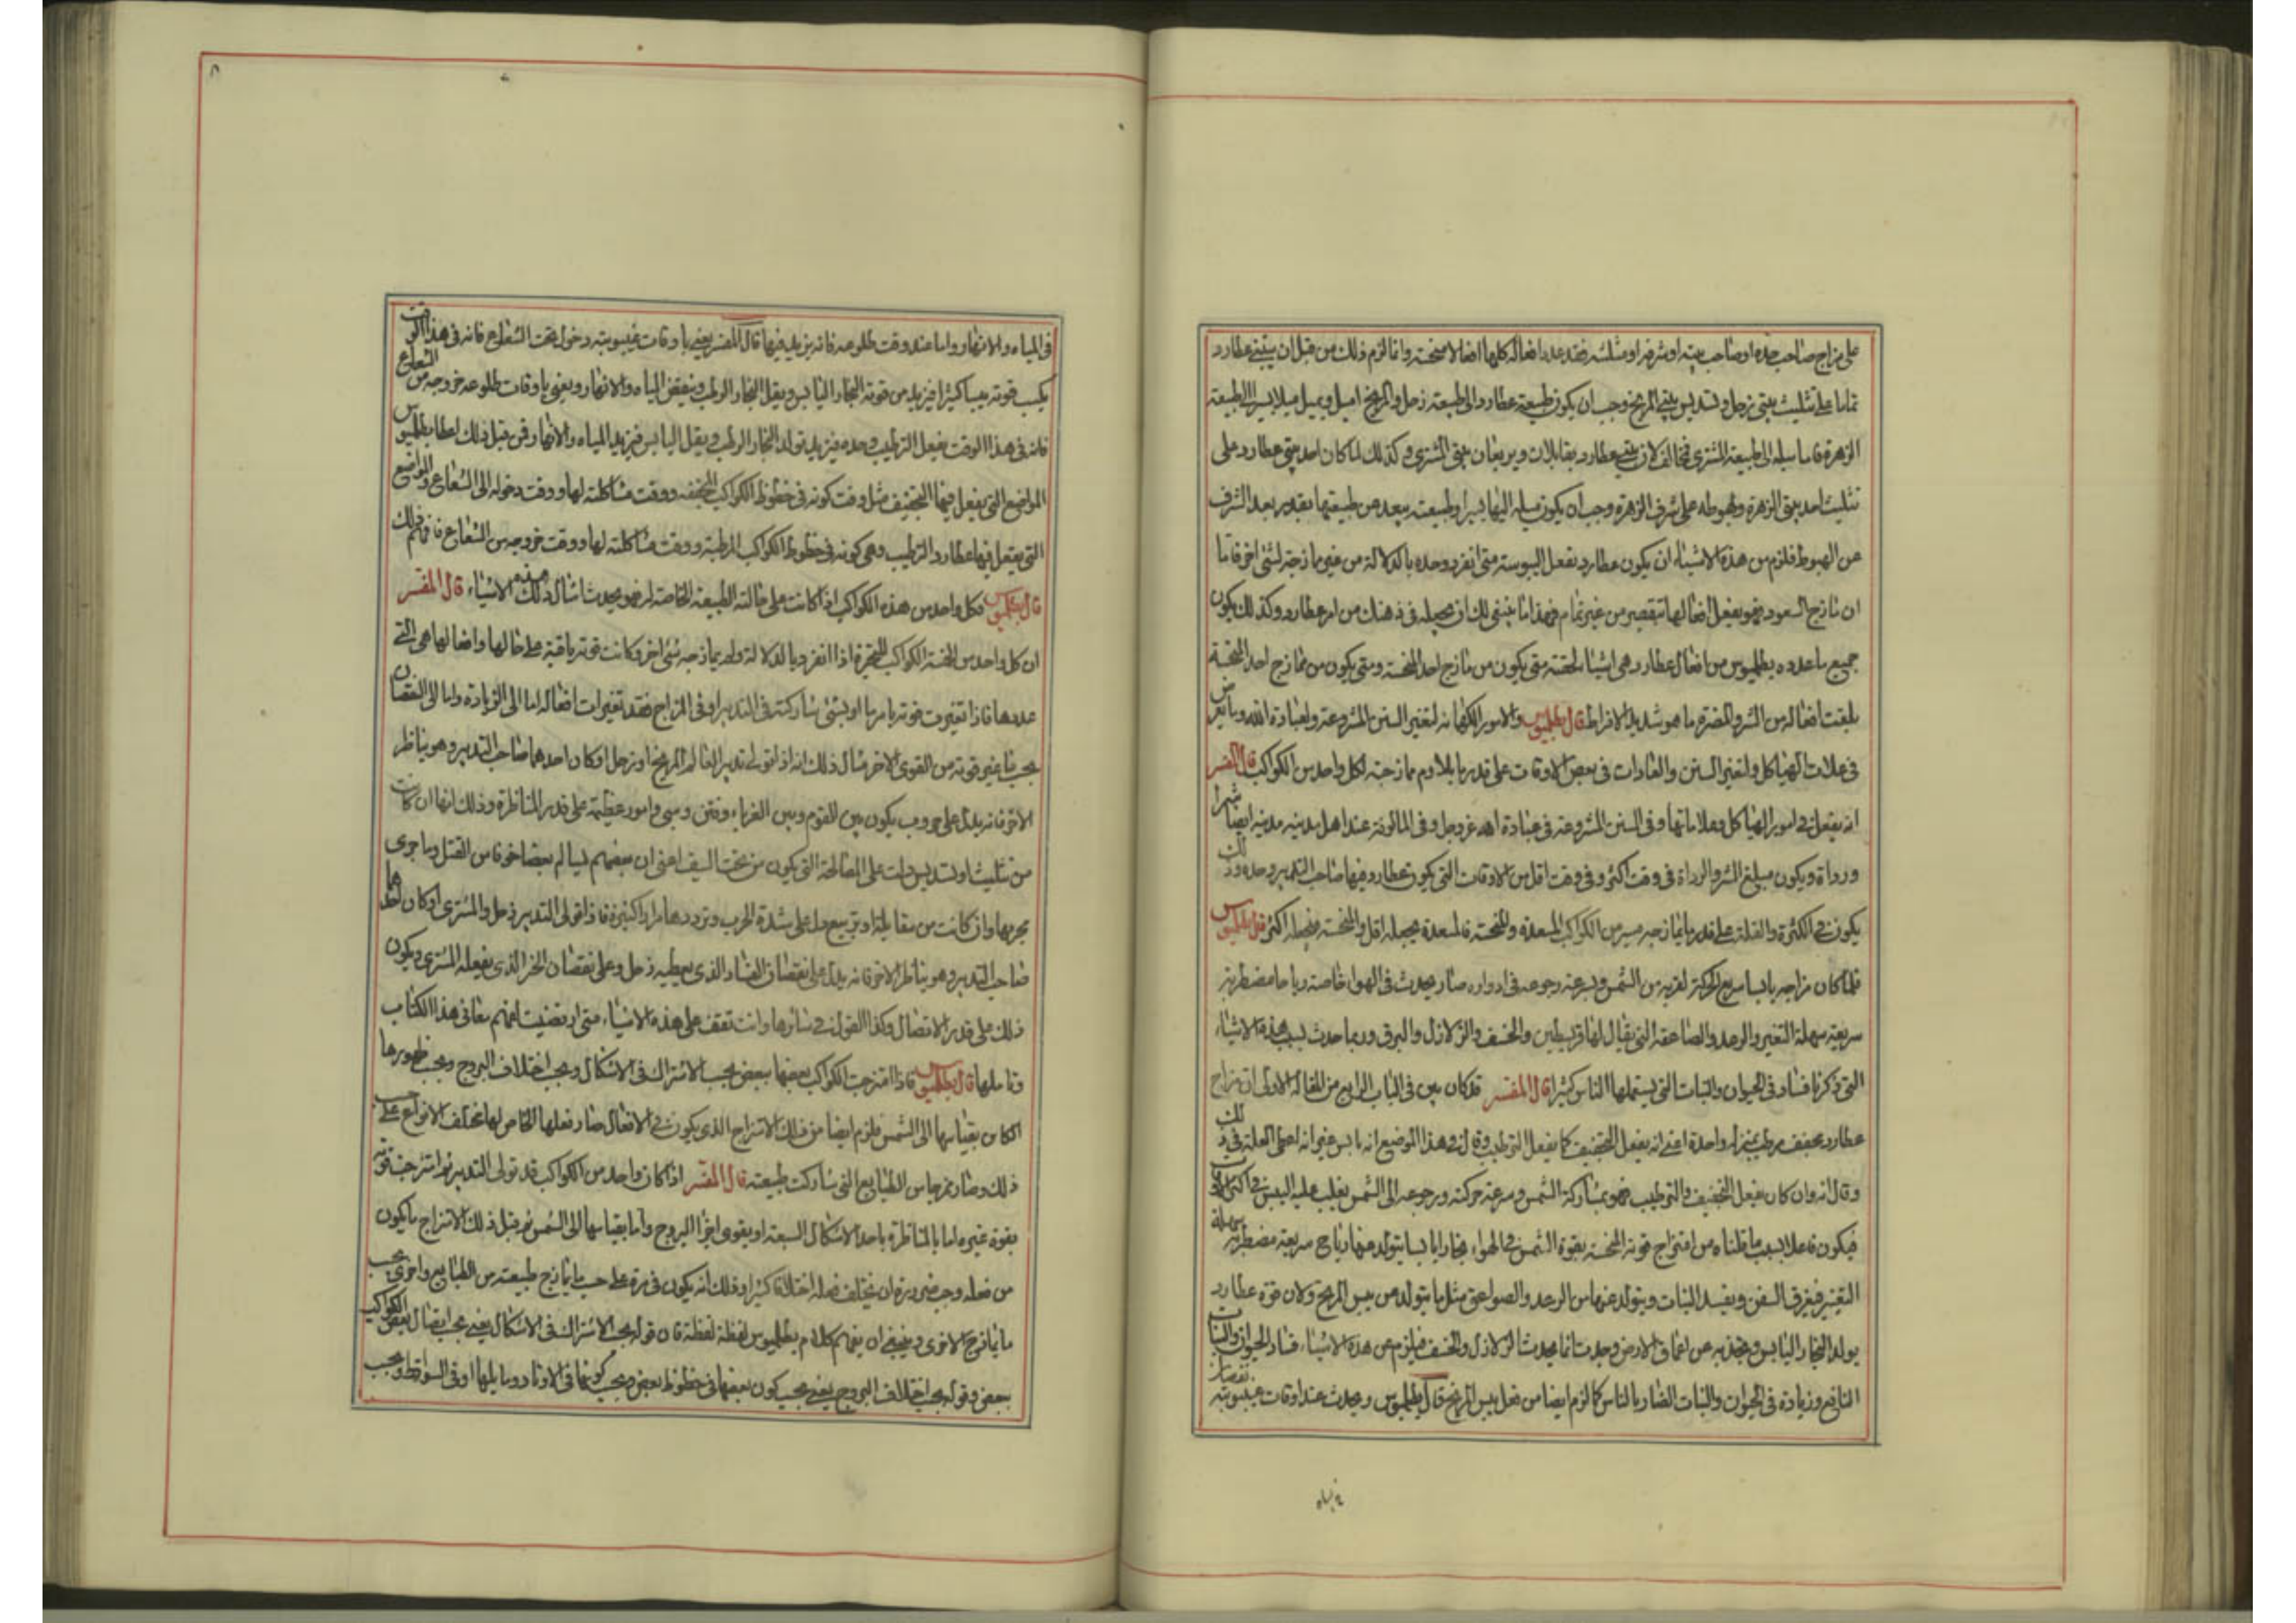 على مزاج صاحب حده او صاحب بيته او شرفه او مثلثته فقد عدد افعاله كلها افعالا منحسة وانما لزم ذلك من قبل ان بيتي عطارد
تماما على تثليث بيتي زحل وتسديس بيتي المريخ وجب ان يكون طبيعة عطارد والى طبيعة زحل والمريخ اميل ويميل ميلا يسيرا الى طبيعة
الزهرة فاما ميله الى طبيعة المشتري فمخالف لان بيتي عطارد يقابلان ويربعان بيتي المشتري وكذلك لما كان احد بيتي عطارد على
تثليث احد بيتي الزهرة وهبوطه على شرف الزهرة وجب ان يكون ميله اليها يسيرا وطبيعته يبعد من طبيعتها بقدر بعد الشرف
من الهبوط فلزم من هذه الاشياء ان يكون عطارد يفعل اليبوسة متى انفرد وحده بالدلالة من غير ممازجة لشئ اخر فاما
ان مازج السعود فهو يفعل افعالها بتقصير من غير تمام فهذا ما ينبغي لك ان تجعله في ذهنك من امر عطارد وكذلك يكون
جميع ما عدده بطلميوس من افعال عطارد هي اشياء لحقته متى يكون من مازج احد المنحسة ومتى يكون من تمازج احد المنحسة
بلغت افعاله من الشر والمضرة ما هو شديد الافراط قال بطلميوس والامور الكهانية لتغير السنن المشروعة ولعبادة الله وما يعرض
في غلات الهياكل ولتغير السنن والعادات في بعض الاوقات على قدر ما يلاوم ممازجته لكل واحد من الكواكب قال المفسر
انه يفعل في امور الهياكل وعلاماتها وفي السنن المشروعة في عبادة الله عز وجل وفي المالوفة عند اهل مدينة مدينة ايضا شرا
ورداة ويكون مبلغ الشر والرداة في وقت اكثر وفي وقت اقل من الاوقات التي يكون عطارد فيها صاحب التدبير وحده وذلك
يكون في الكثرة والقلة على قدر ما يمازجه من الكواكب المسعدة والمنحسة فالمسعدة تجعله اقل والمنحسة تجعله اكثر قال بطلميوس
فلما كان مزاجه يابسا سريع الحركة لقربه من الشمس ولسرعة رجوعه في ادواره صار يحدث في الهواء خاصة رياحا مضطربة
سريعة سهلة التغير والرعد والصاعقة التي يقال لها قريسطين والخسف والزلازل والبرق وربما حدث بسبب هذه الاشياء
التي ذكرنا فساد في الحيوان والنبات التي يستعملها الناس كثيرا قال المفسر قد كان بين في الباب الرابع من المقالة الاولى ان مزاج
عطارد مجفف مرطب بمنزلة واحدة اعني انه يفعل التجفيف كما يفعل الترطيب وقال في هذا الموضع انه يابس غير انه اعطى العلة في ذلك
وقال انه وان كان يفعل التجفيف والترطيب فهو بمشاركة الشمس وسرعة حركته ورجوعه الى الشمس يغلب عليه اليبس في اكثر الاوقات
فيكون فاعلا بسبب ما قلناه من امتزاج قوته المنحسة بقوة الشمس في الهواء بخارا يابسا يتولد منها رياح سريعة مضطربة سهلة
التغير فيغرق السفن ويفسد النبات ويتولد عنها من الرعد والصواعق مثل ما يتولد من يبس المريخ ولان قوة عطارد
يولد البخار اليابس ويجذبه من اعماق الارض وحدت انما يحدث الزلازل والخسف فيلزم من هذه الاشياء فساد الحيوان والنبات
النافع وزيادة في الحيوان والنبات الضار بالناس كما لزم ايضا من فعل يبس المريخ قال بطلميوس ويحدث عند اوقات غيبوبته نقصان
في المياه والانهار واما عند وقت طلوعه فانه يزيد فيها قال المفسر يعني باوقات غيبوبته دخوله تحت الشعاع فانه في هذا الوقت
يكسب قوته يبسا كثيرا فيزيد من قوته البخار اليابس ويقل البخار الرطب وينقص المياه والانهار ويعني باوقات طلوعه خروجه من الشعاع
فانه في هذا الوقت يفعل الترطيب وحده فيزيد تولد البخار الرطب ويقل اليابس فيزيد المياه والانهار ومن قبل ذلك اعطانا بطلميوس
المواضع التي يفعل فيها التجفيف مثل وقت كونه في حظوظ الكواكب المجففة ووقت مشاكلته لها ووقت دخوله الى الشعاع والمواضع
التي يفعل فيها عطارد الترطيب وهي كونه في حظوظ الكواكب المرطبة ووقت مشاكلته لها ووقت خروجه من الشعاع فافهم ذلك
قال بطلميوس فكل واحد من هذه الكواكب اذا كانت على حالته الطبيعية الخاصة له فهو يحدث امثال ذلك هذه الاشياء قال المفسر
ان كل واحد من الخمسة الكواكب المتحيرة اذا انفرد بالدلالة ولم يمازجه شئ اخر وكانت قوته باقية على حالها وافعالها هي التي
عددها فاذا تغيرت قوته بامر ما او بشئ شاركته في التدبير او في المزاج فقد تغيرت افعاله اما الى الزيادة واما الى النقصان
بحسب ما يغير قوته من القوى الاخر مثال ذلك انه اذا تولى تدبير العالم المريخ او زحل او كان احدهما صاحب التدبير وهو يناظر
الاخر فانه يدل على حروب يكون بين القوم وبين الغرباء وفتن وسبي وامور عظيمة على قدر المناظرة وذلك انها ان كانت
من تثليث او تسديس دلت على المصالحة التي يكون من تحت السيف اعني ان بعضهم يسالم بعضا خوفا من القتل وما جرى
مجراها وان كانت من مقابلة او تربيع دل على شدة الحرب وترددها مرارا كثيرة فاذا تولى التدبير زحل والمشتري او كان احدهما
صاحب التدبير وهو يناظر الاخر فانه يدل على نقصان الفساد الذي يعطيه زحل وعلى نقصان الخير الذي يفعله المشتري ويكون
ذلك على قدر الاتصال وكذا القول في سائرها وانت تقف على هذه الاشياء متى ارتضيت افهم معاني هذا الكتاب
وتاملها قال بطلميوس فاذا امتزجت الكواكب بعضها ببعض بحسب الاشتراك في الاشكال وبحسب اختلاف البروج وبحسب ظهورها
الكائن بقياسها الى الشمس فلزم ايضا من ذلك الامتزاج الذي يكون في الافعال صار فعلها الخاص لها مختلف الانواع على حسب
ذلك وصار ممزجا من الطبايع التي شاركت طبيعته قال المفسر اذا كان واحد من الكواكب قد تولى التدبير ثم امتزجت قوته
بقوة غيره اما بالمناظرة باحد الاشكال السبعة او بقوى اجزاء البروج واما بقياسها الى الشمس ثم قبل ذلك الامتزاج ما يكون
من فعله وجب ضرورة ان يختلف فعله اختلافا كثيرا وذلك انه يكون في مرة على حسب ما يمازج طبيعته من الطبايع واخرى بحسب
ما يمازج الاخرى وينبغي ان يفهم كلام بطلميوس لفظة لفظة فان قوله بحسب الاشتراك في الاشكال يعني بحسب اتصال بعض الكواكب
ببعض وقوله بحسب اختلاف البروج يعني بحسب كون بعضها في حظوظ بعض وبحسب كونها في الاوتاد وما يليها او في السواقط وبحسب